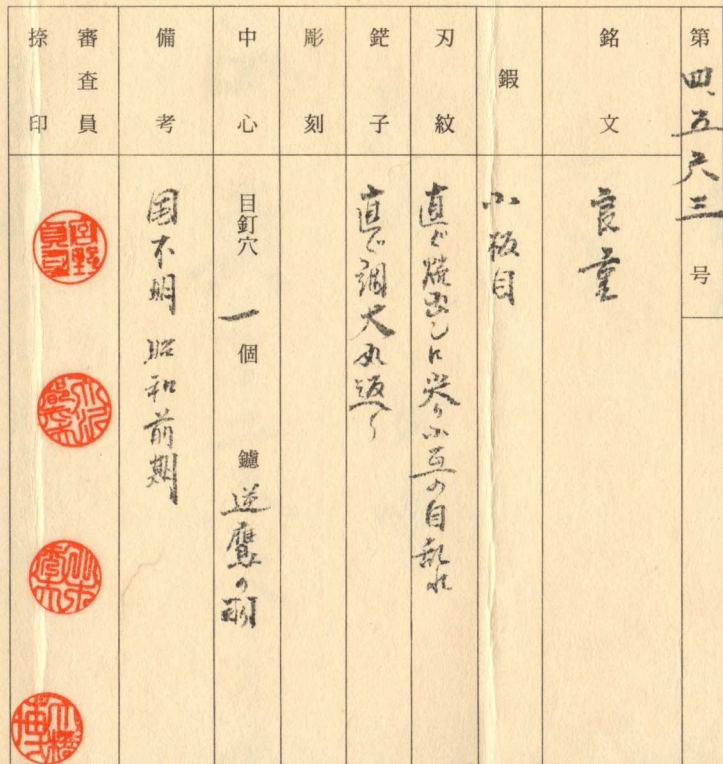 第四、五六三号
銘文 良重
鍜 小板目
刃紋 直ぐ焼出しに尖り小互の目乱れ
鋩子 直ぐ調大丸返り
彫刻
中心 目釘穴 一個 鑢 逆鷹の羽
備考 国不明 昭和前期
審査員
捺印